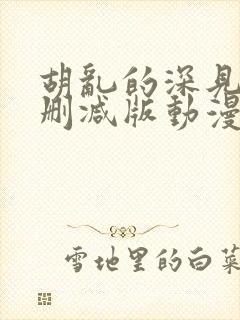 胡亂的深見
刪減版動漫
雪地里的白菜